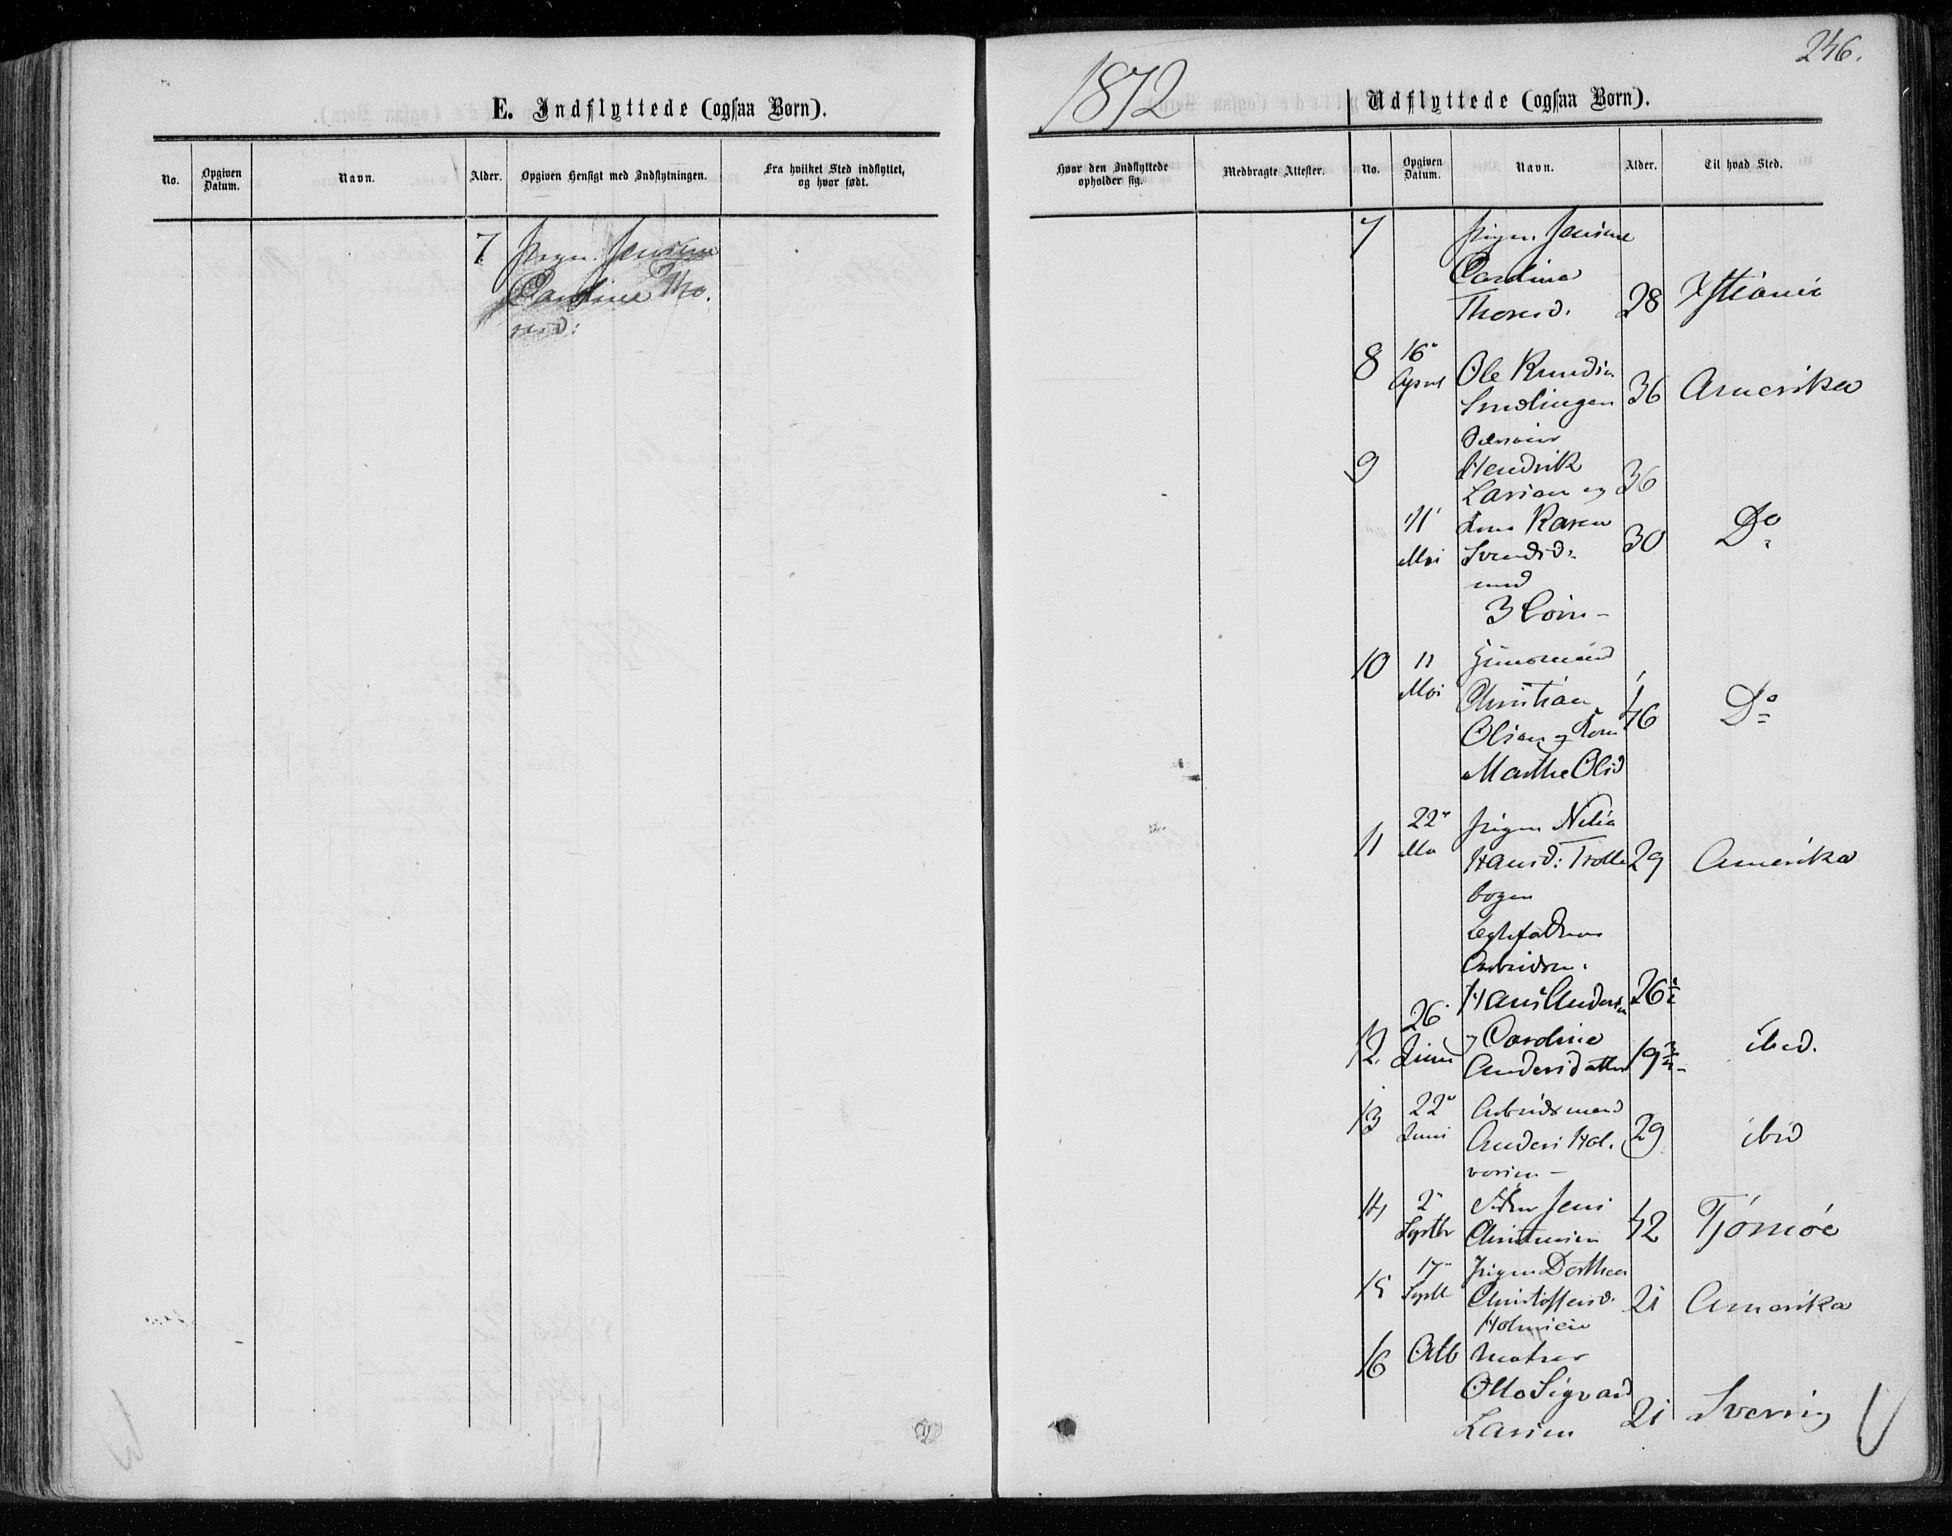 246.
1872
E. Indflyttede (ogsaa Børn).
No.
Opgiven Datum.
Navn.
Alder.
Opgiven Hensigt med Indflytningen.
Fra hvilket Sted indflyttet, og hvor født.
7 Pigen Jensine
Caroline Tho
resd:
Udflyttede (ogsaa Børn).
Hvor den Indflyttede opholder sig.
Medbragte Attester.
No.
Opgiven Datum.
Navn.
Alder.
Til hvad Sted.
7 Pigen Jensine
Caroline
Thoresd. 28 Xstiania
8 16 April Ole Knudsen
36 Amerika
9 Hendrik
Larsen og 36
11 Mai Kone Karen
Svendsd. 30 Do
med
3 Børn -
10 11 Mai Huusmand
Christian
Olsen og Kone 46 Do
Marthe Olsd
11 22 Mai Pigen Nilia
Hansd: Trolle 29 Amerika
bogen
Ægtefolkene
Arbeidsm.
Hans Anders
12. 26 Juni og Caroline ibid.
Andersdatter
13 22 Juni Arbeidsmand
Anders Hal- 29 ibid
vorsen -
14 2 Septbr Jens
Christensen 42 Tjømøe
15 17 Septb Pigen Dorthea
Christoffersd. 21 Amerika
16 Octb Matros
Otto Sigvard
Larsen 21 Sverrig